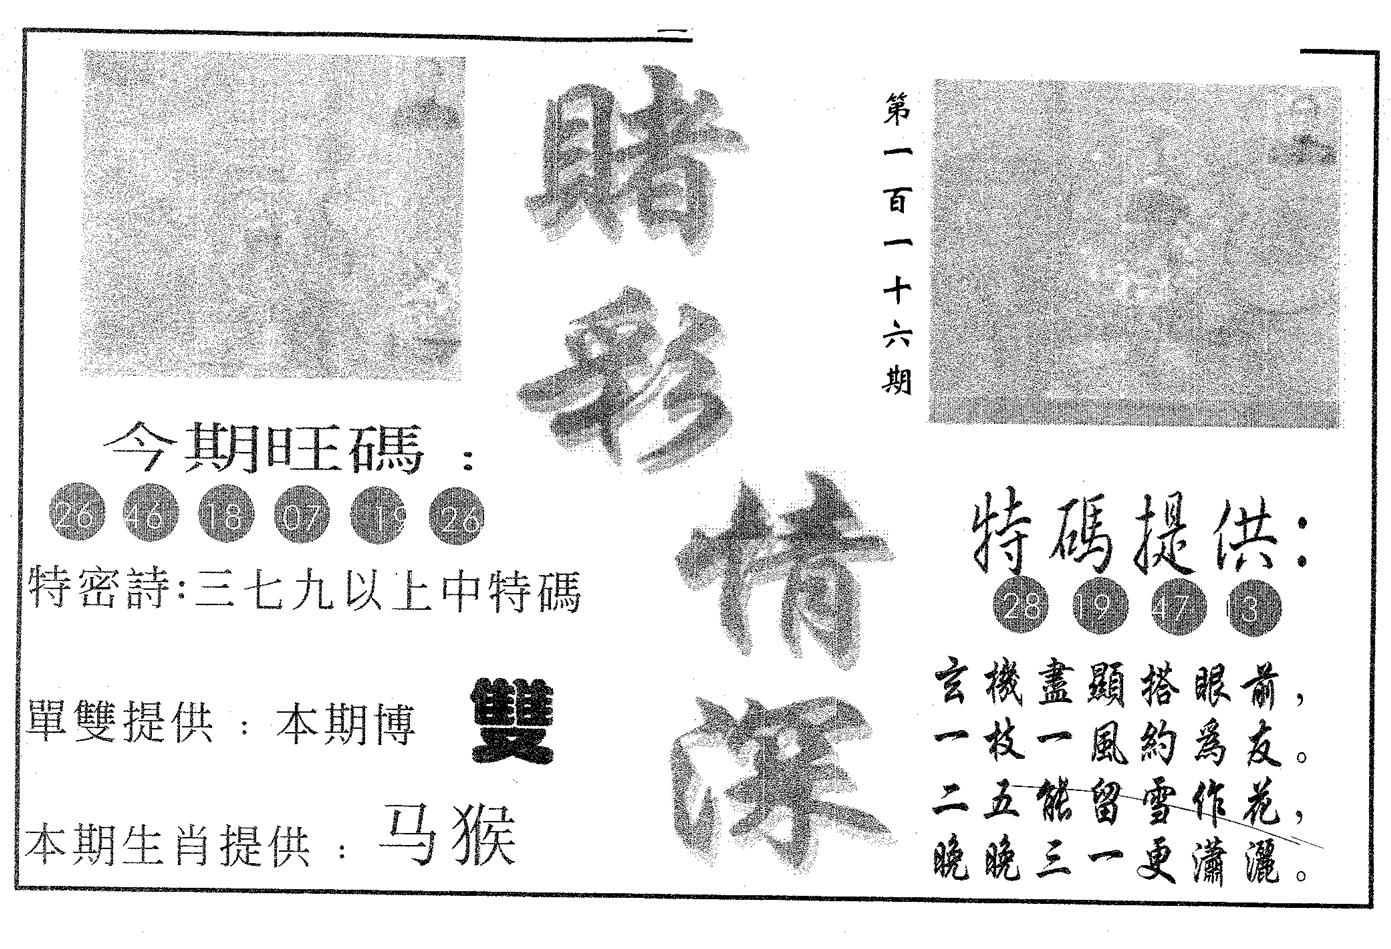 賭彩情深
第一百一十六期
今期旺碼：
26 46 18 07 19 26
特密詩:三七九以上中特碼
單雙提供：本期博 雙
本期生肖提供：马猴
特碼提供：
28 19 47 13
玄機盡顯搭眼前，
一枝一風約爲友。
二五能留雪作花，
晚晚三一更瀟灑。